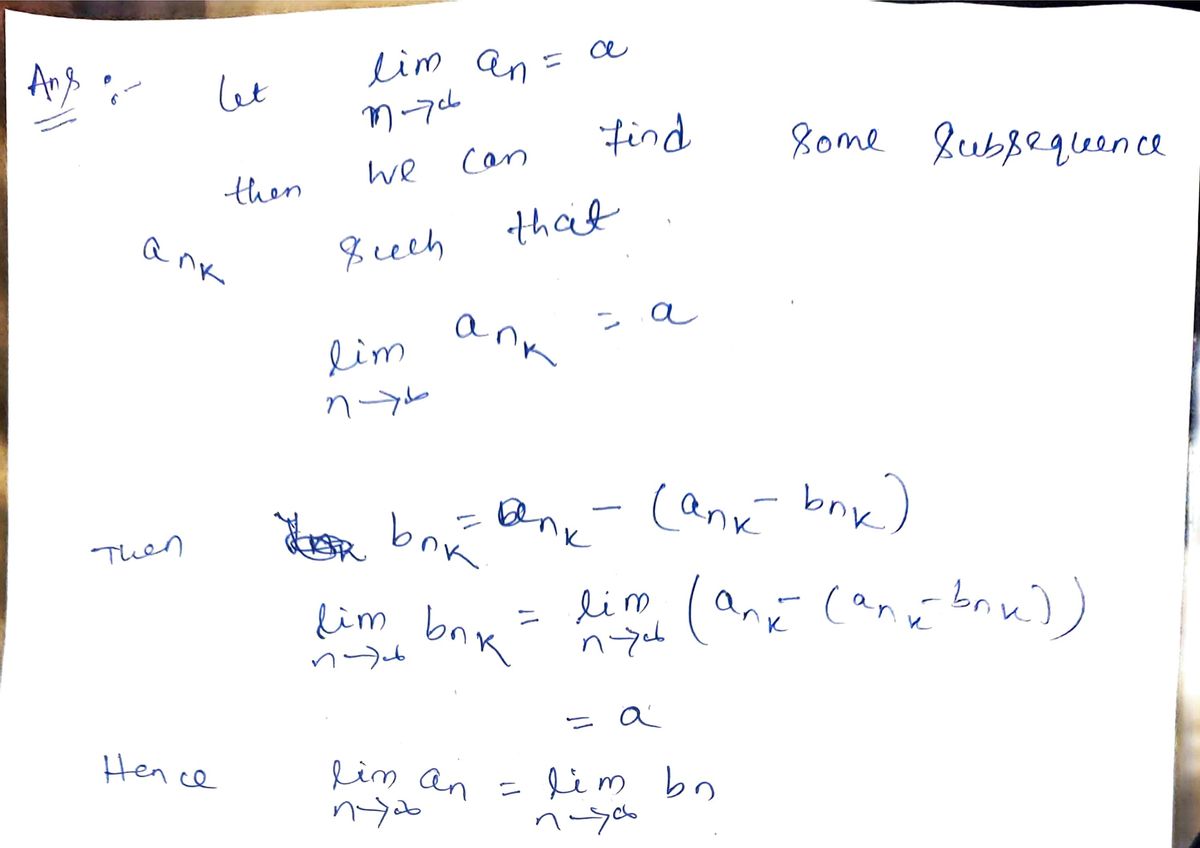 Ans :- Let lim an = a
n→∞
then we can find some subsequence
ank such that
lim ank = a
n→∞
Then bnk = ank - (ank - bnk)
lim bnk = lim (ank - (ank - bnk))
n→∞ n→∞
= a
Hence lim an = lim bn
n→∞ n→∞